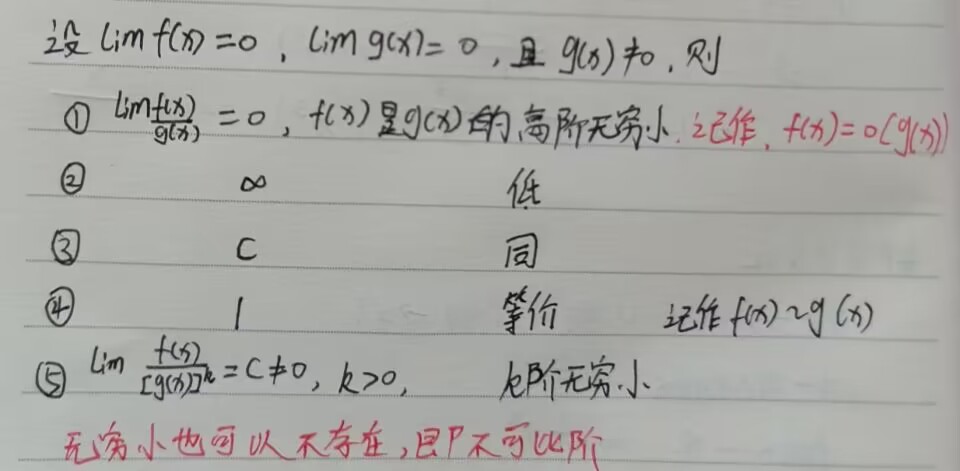 设 lim f(x)=0, lim g(x)=0, 且 g(x)≠0, 则
① lim f(x)/g(x) = 0, f(x)是g(x)的高阶无穷小. 记作, f(x)=o(g(x))
② ∞ 低
③ C 同
④ 1 等价 记作 f(x)~g(x)
⑤ lim f(x)/[g(x)]^k = C≠0, k>0, k阶无穷小
无穷小也可以不存在,即不可比阶